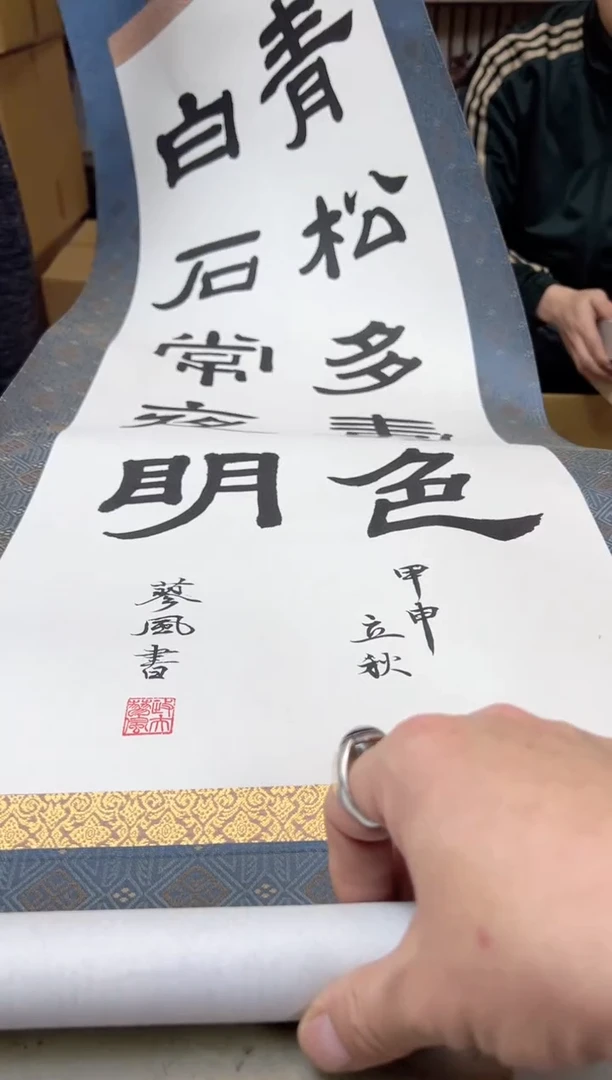 青松多壽色
白石常夜明
甲申
立秋
蓼風書